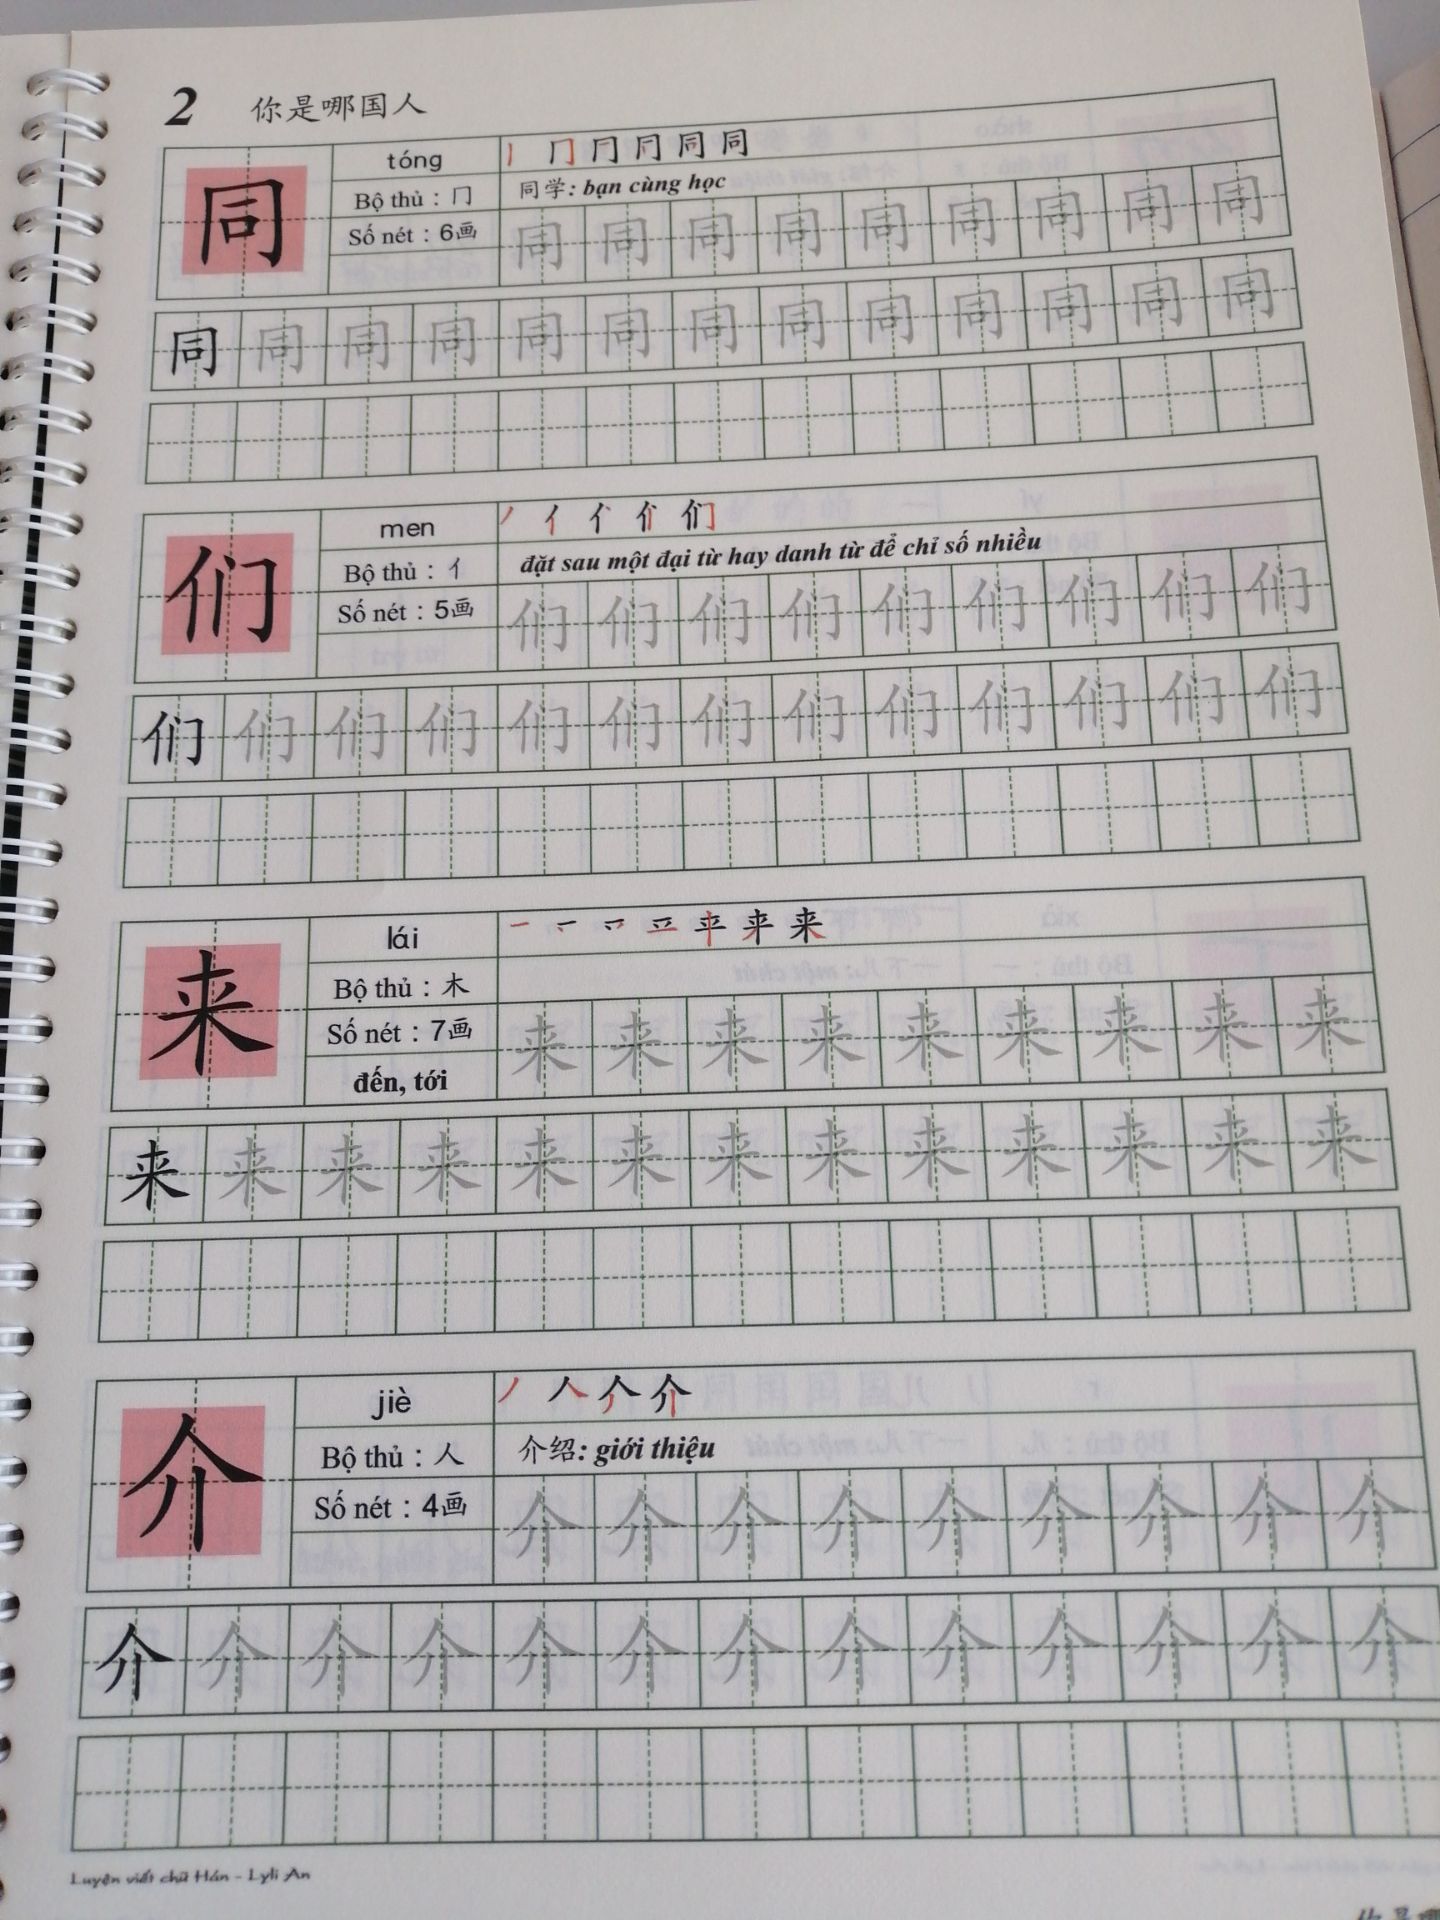 2 你是哪国人
同
tóng
Bộ thủ : 冂
Số nét : 6画
丨 冂 冂 同 同 同
同学: bạn cùng học
同 同 同 同 同 同 同 同 同
同 同 同 同 同 同 同 同 同 同 同 同 同
们
men
Bộ thủ : 亻
Số nét : 5画
丿 亻 们
đặt sau một đại từ hay danh từ để chỉ số nhiều
们 们 们 们 们 们 们 们 们
们 们 们 们 们 们 们 们 们 们 们 们 们
来
lái
Bộ thủ : 木
Số nét : 7画
đến, tới
一 平 来 来
来 来 来 来 来 来 来 来 来
来 来 来 来 来 来 来 来 来 来 来 来 来
介
jiè
Bộ thủ : 人
Số nét : 4画
丿 人 介 介
介绍: giới thiệu
介 介 介 介 介 介 介 介 介
介 介 介 介 介 介 介 介 介 介 介 介 介
Luyện viết chữ Hán - Lyli An